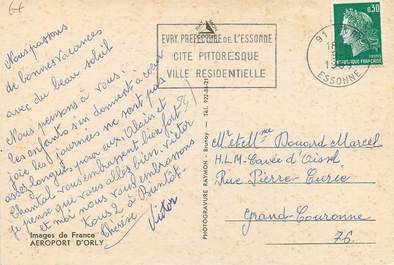 Nous passons
de bonnes vacances
avec du beau soleil
Nous pensons à vous.
les enfants s'en donnent à coeur
joie les journées ne sont pas
assez longues pour eux. Alain et
Chantal vous embrassent bien fort
je pense que vous allez bien. Victor
et moi nous vous embrassons
tous 2 à Bientôt.
Thérèse Victor
Images de France
AEROPORT D'ORLY
EVRY. PREFECTURE DE L'ESSONNE
CITE PITTORESQUE
VILLE RESIDENTIELLE
91
ESSONNE
0,30
PHOTOGRAVURE RAYMON - Brunoy - Tél. 922-86-21
Mr et Mme Douard Marcel
H.L.M-Cavée d'Oissel,
Rue Pierre-Curie
Grand-Couronne
76.